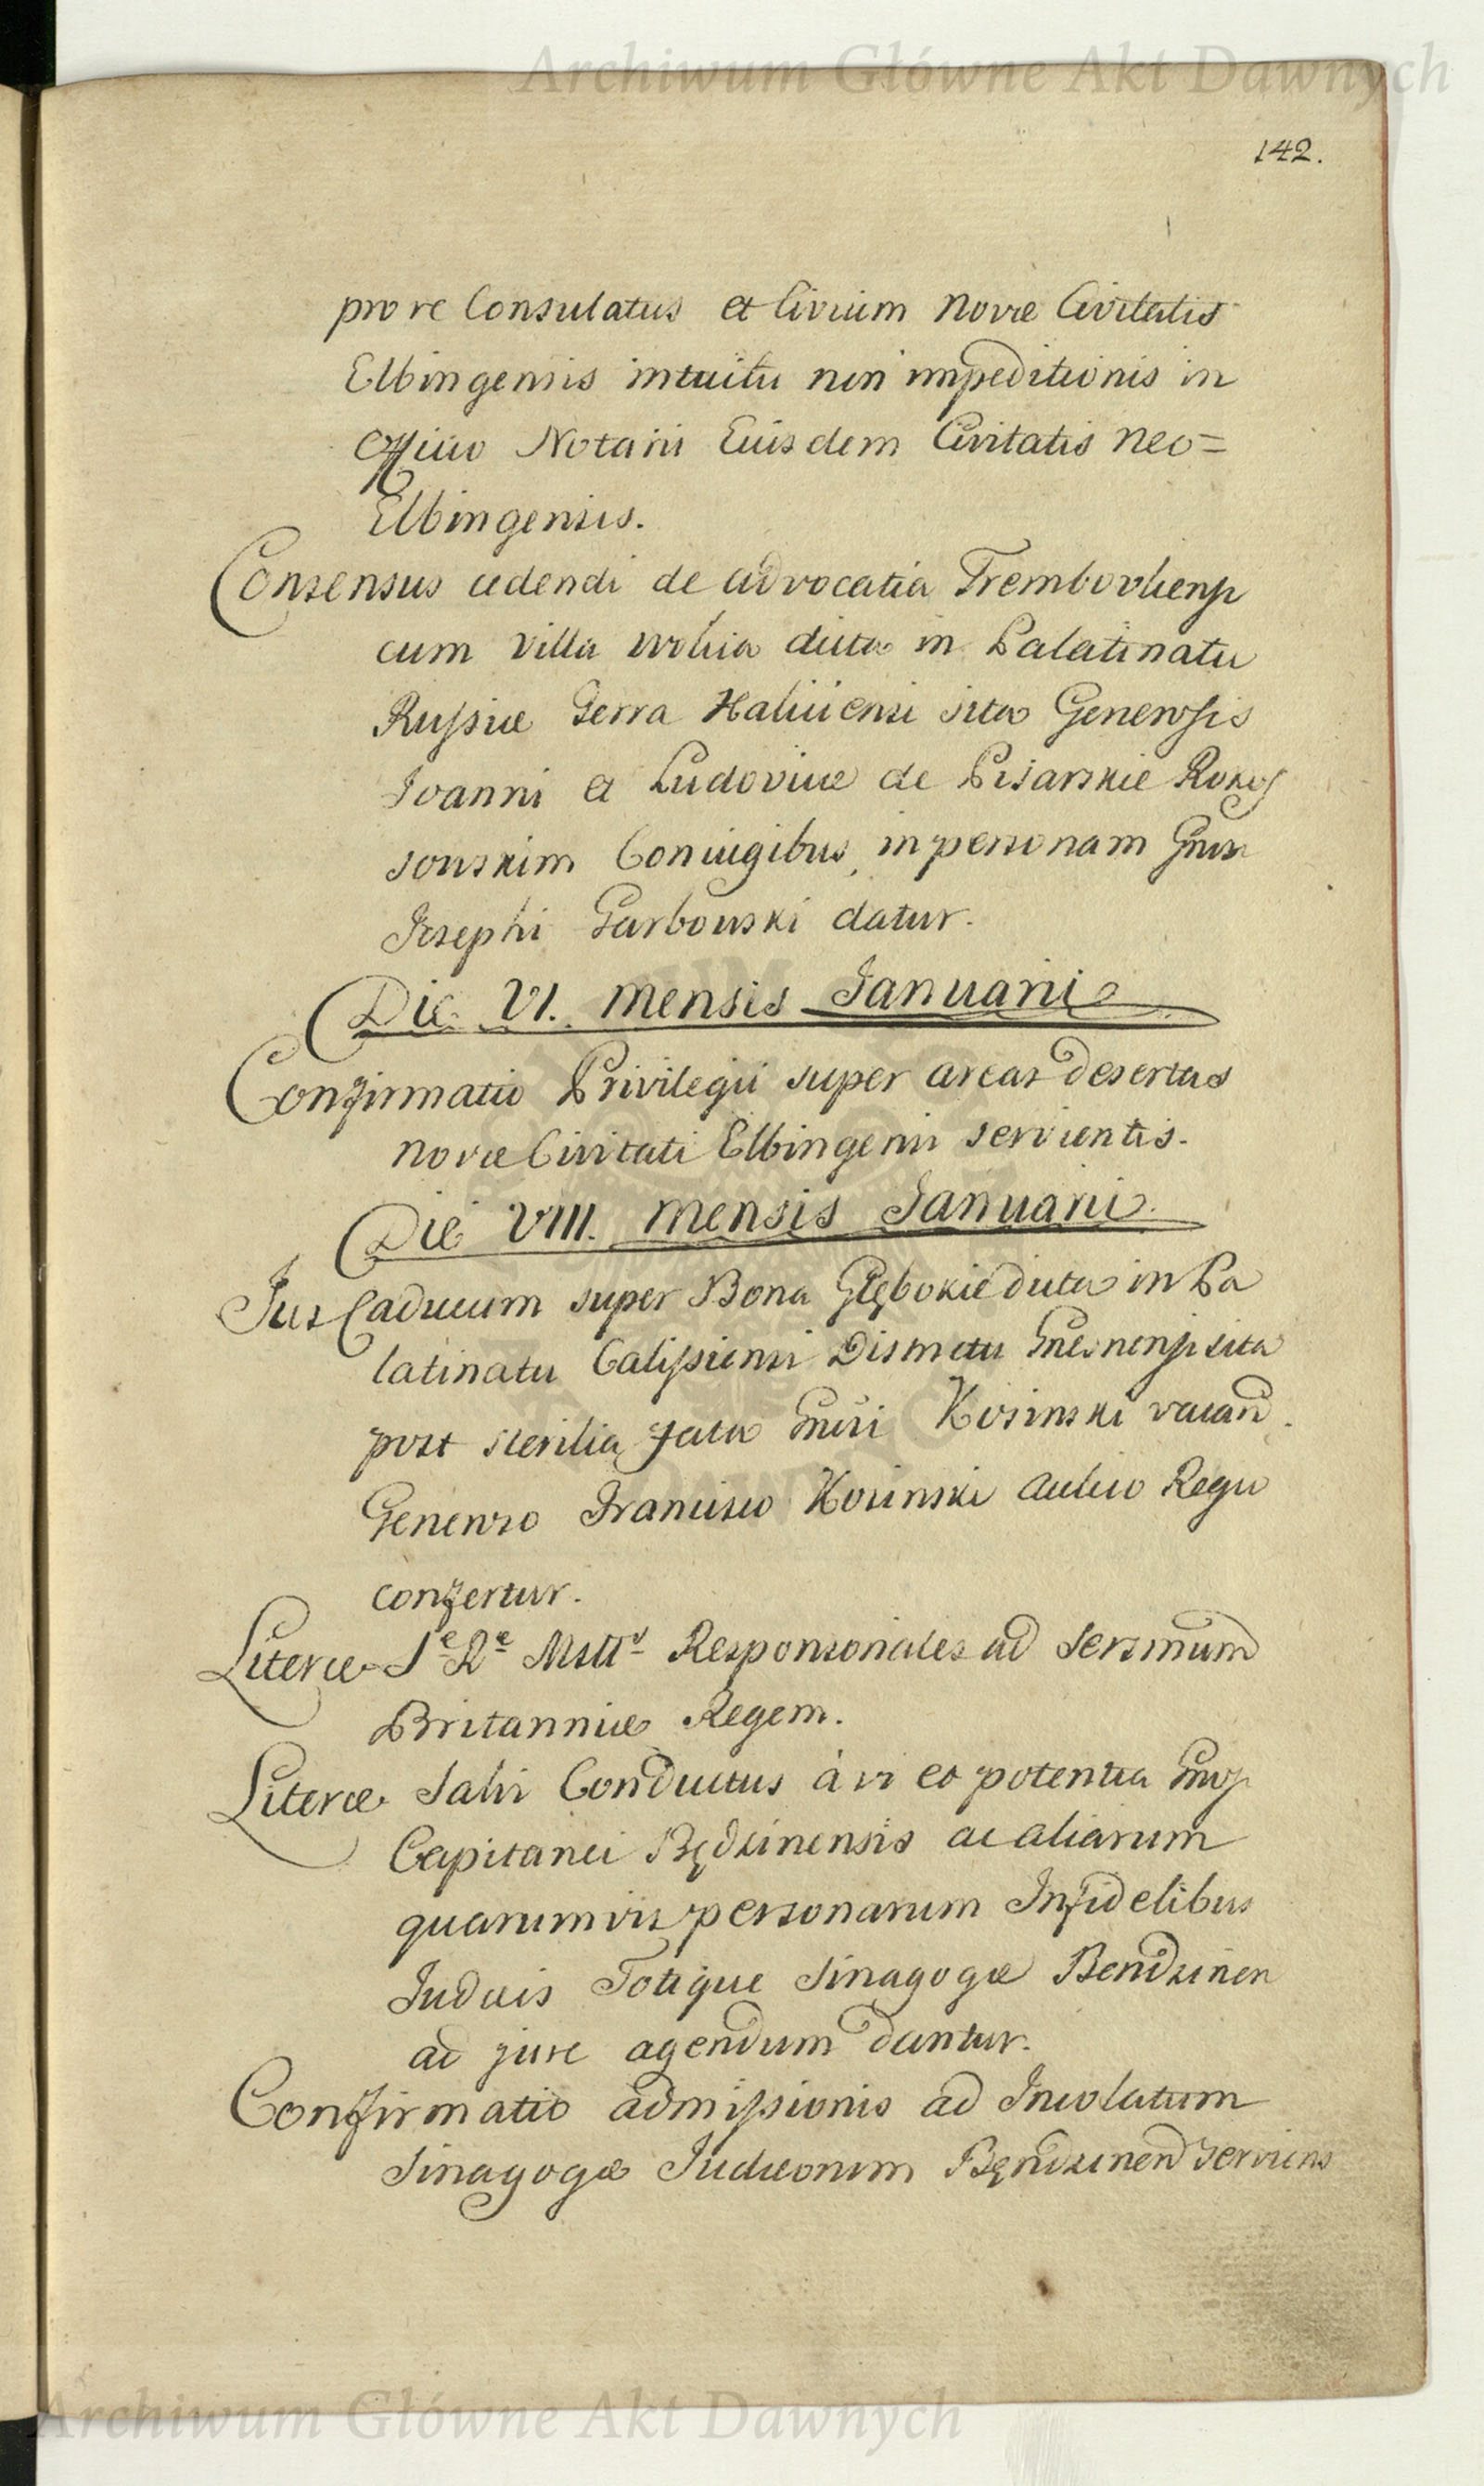 Archiwum Główne Akt Dawnych
142.
pro re Consulatus et Civium Novæ Civitatis
Elbingensis intuitu non impeditionis in
Officio Notarii Eiusdem Civitatis Neo=
Elbingensis.
Consensus cedendi de advocatia Trembovliensi
cum Villa Wolica dicta in Palatinatu
Russiæ Terra Haliciensi sita Generosis
Joanni et Ludovicæ de Pisarskie Rokos
sowskim Coniugibus, in personam Gnsi
Josephi Garbowski datur.
Die VI. Mensis Januarii
Confirmatio Privilegii super areas desertas
novæ Civitati Elbingensi servientis.
Die VIII. Mensis Januarii.
Jus Caducum super Bona Głębokie dicta in Pa
latinatu Calissiensi Districtu Gnesnensi sita
post sterilia fata Gnsi Kosinski vacand.
Generoso Francisco Kosinski Aulico Regio
confertur.
Literæ Sæ Ræ Mttis Responsoriales ad Sersmum
Britanniæ Regem.
Literæ Salvi Conductus à vi et potentia Gnosi
Capitanei Będzinensis ac aliarum
quarumvis personarum Infidelibus
Judæis Totique Sinagogæ Bendzinen
ad jure agendum dantur.
Confirmatio admissionis ad Incolatum
Sinagogæ Judæorum Będzinen serviens
Archiwum Główne Akt Dawnych